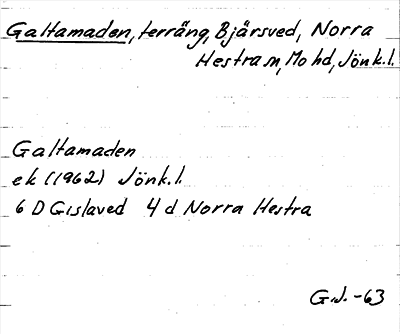 Galtamaden, terräng, Bjärsved, Norra
Hestra sn, Mo hd, Jönk.l.
Galtamaden
ek (1962) Jönk.l.
6 D Gislaved 4 d Norra Hestra
G.J. -63